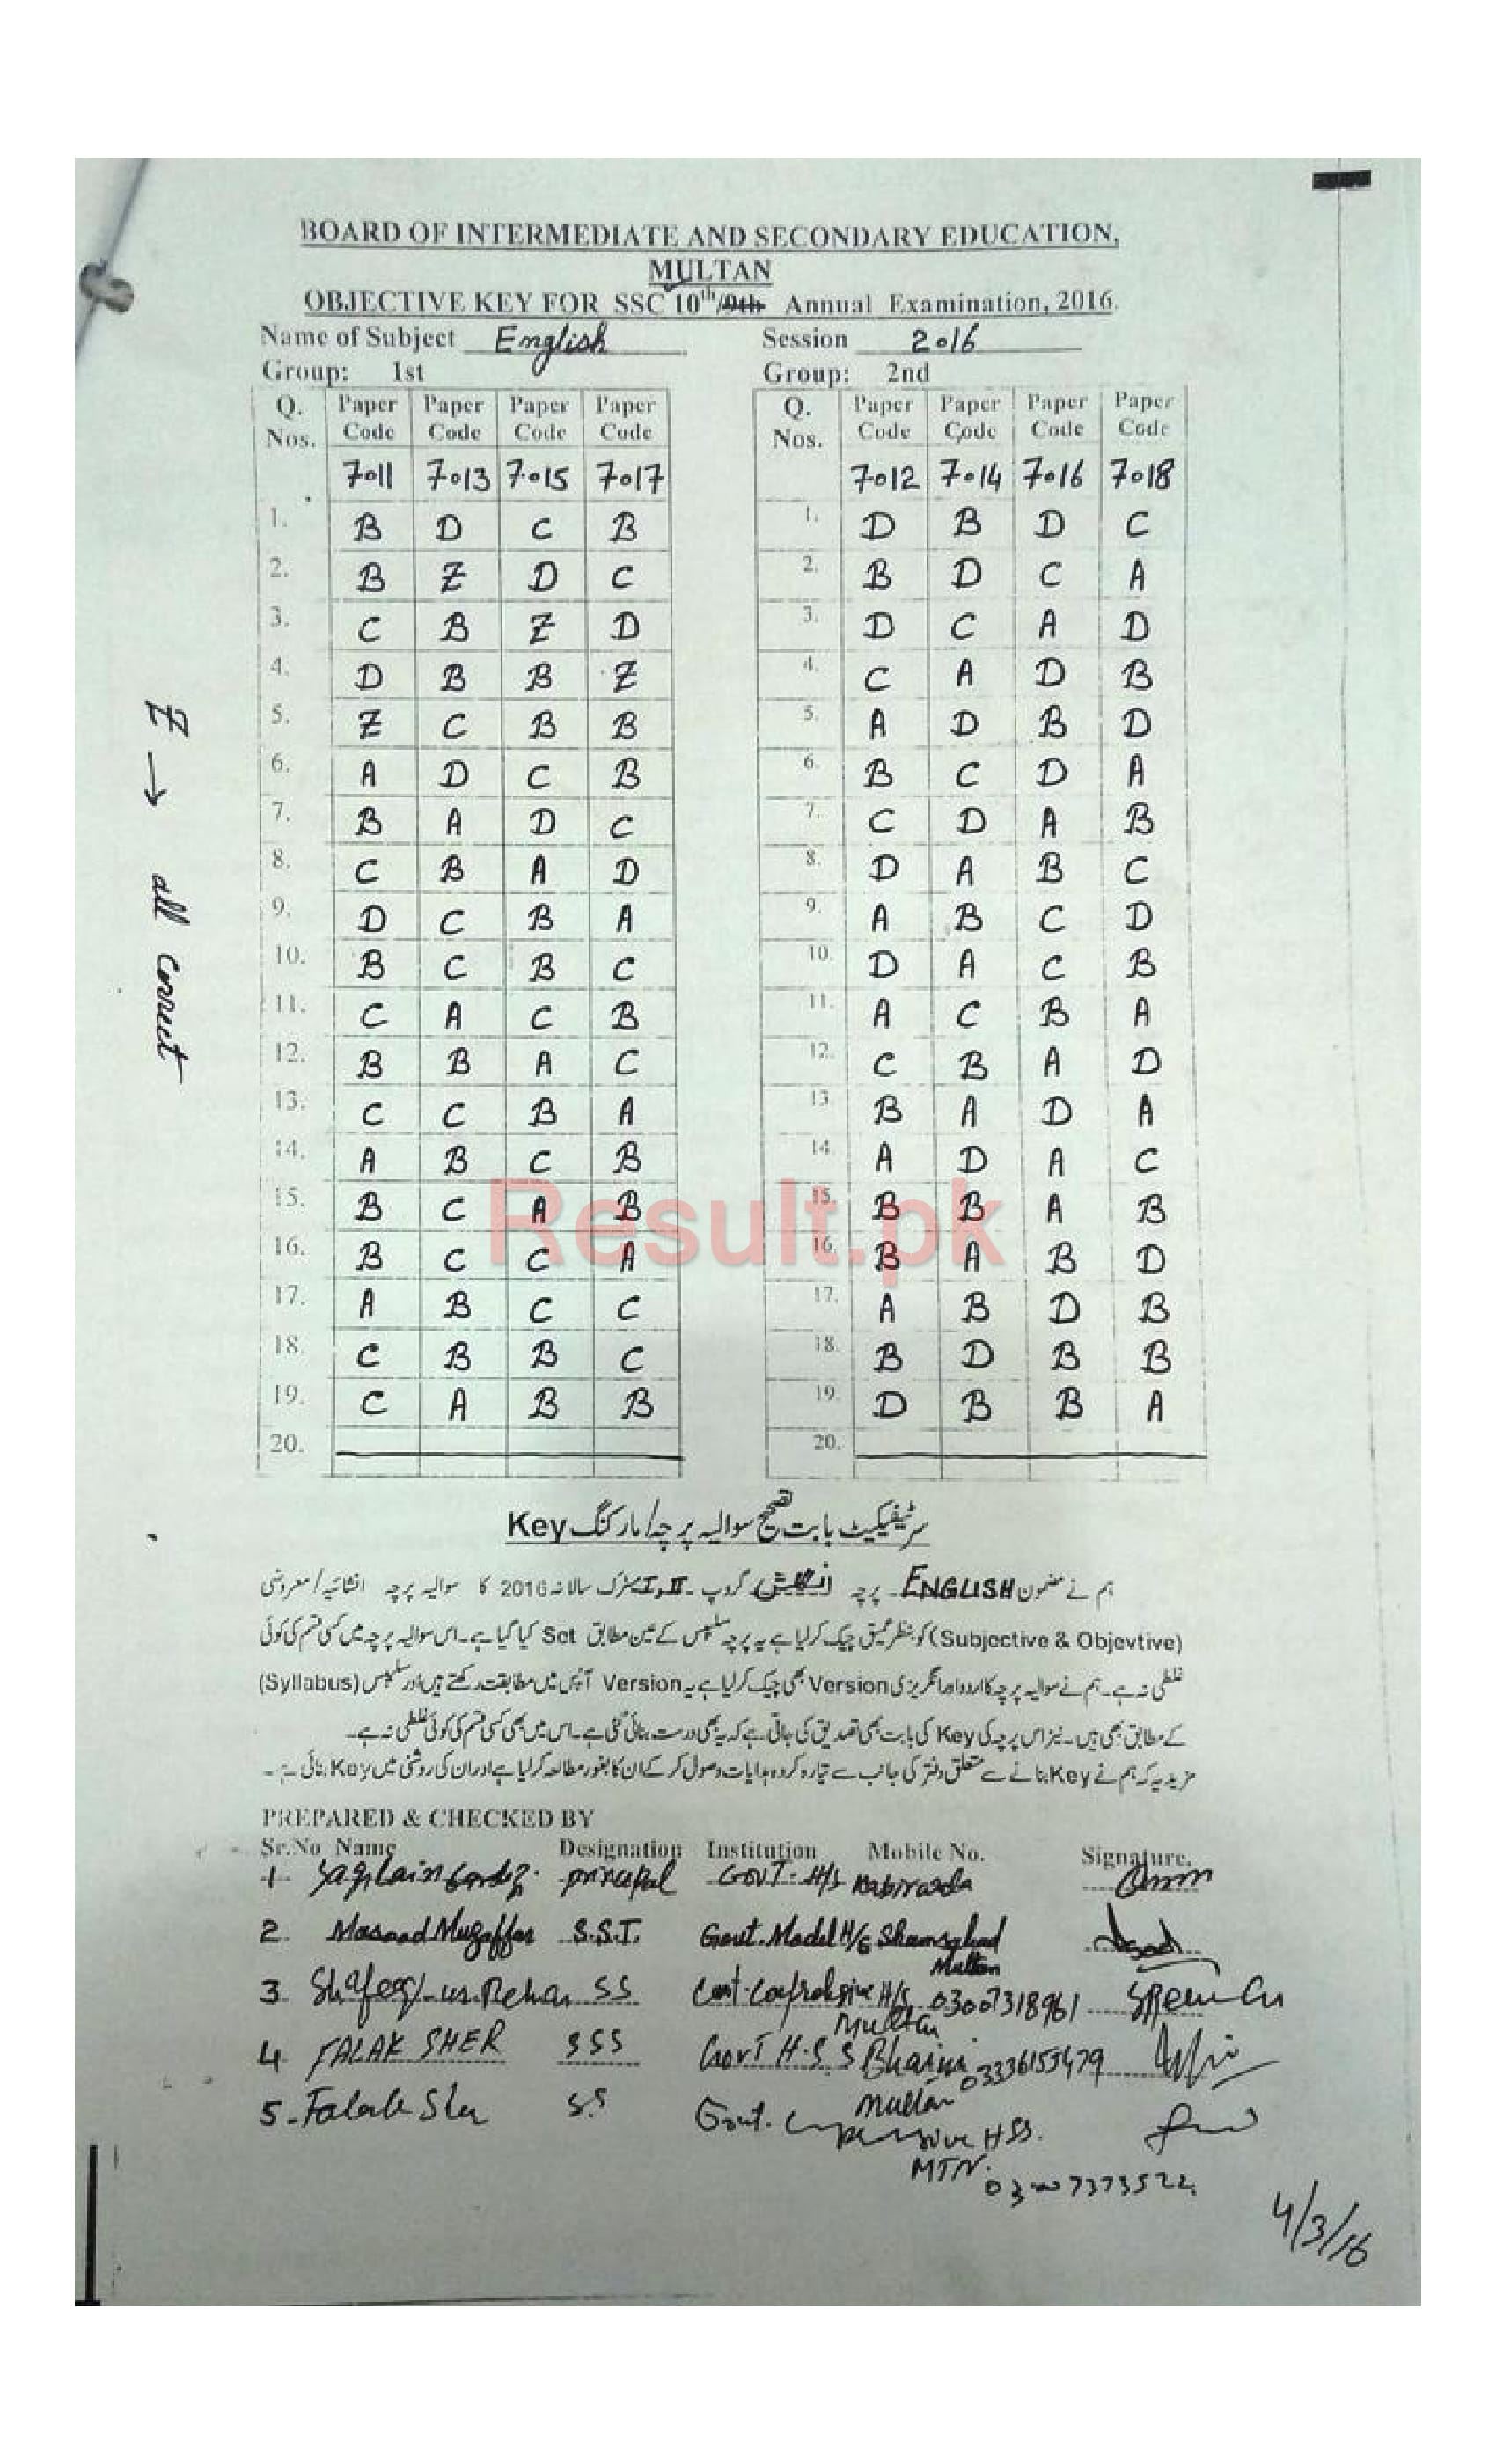 BOARD OF INTERMEDIATE AND SECONDARY EDUCATION,
MULTAN
OBJECTIVE KEY FOR SSC 10th/9th Annual Examination, 2016.
Name of Subject English Session 2016
Group: 1st Group: 2nd
Q. Nos. Paper Code Paper Code Paper Code Paper Code Q. Nos. Paper Code Paper Code Paper Code Paper Code
7011 7013 7015 7017 7012 7014 7016 7018
1. B D C B 1. D B D C
2. B Z D C 2. B D C A
3. C B Z D 3. D C A D
4. D B B Z 4. C A D B
5. Z C B B 5. A D B D
6. A D C B 6. B C D A
7. B A D C 7. C D A B
8. C B A D 8. D A B C
9. D C B A 9. A B C D
10. B C B C 10. D A C B
11. C A C B 11. A C B A
12. B B A C 12. C B A D
13. C C B A 13. B A D A
14. A B C B 14. A D A C
15. B C A B 15. B B A B
16. B C C A 16. B A B D
17. A B C C 17. A B D B
18. C B B C 18. B D B B
19. C A B B 19. D B B A
20. 20.
Z → all correct
Result.pk
سرٹیفکیٹ بابت تصحیح سوالیہ پرچہ/مارکنگ Key
ہم نے مضمون ENGLISH پرچہ انگلش گروپ I, II میٹرک سالانہ 2016 کا سوالیہ پرچہ انشائیہ/معروضی
(Subjective & Objevtive) کو بنظر عمیق چیک کر لیا ہے یہ پرچہ سلیبس کے عین مطابق Set کیا گیا ہے۔ اس سوالیہ پرچہ میں کسی قسم کی کوئی
غلطی نہ ہے۔ ہم نے سوالیہ پرچہ کا اردو اور انگریزی Version بھی چیک کر لیا ہے یہ Version آپس میں مطابقت رکھتے ہیں اور سلیبس (Syllabus)
کے مطابق بھی ہیں۔ نیز اس پرچہ کی Key کی بابت بھی تصدیق کی جاتی ہے کہ یہ بھی درست بنائی گئی ہے۔ اس میں بھی کسی قسم کی کوئی غلطی نہ ہے۔
مزید یہ کہ ہم نے Key بنانے سے متعلق دفتر کی جانب سے تیار کردہ ہدایات وصول کر کے ان کا بغور مطالعہ کر لیا ہے اور ان کی روشنی میں Key بنائی ہے۔
PREPARED & CHECKED BY
Sr.No Name Designation Institution Mobile No. Signature.
1 principal GOVT. H/S
2. Masood Muzaffar S.S.T. Govt. Model H/S Shamsabad
Multan
3. Shafeeq-ur-Rehman SS H/S 03007318961
Multan
4. FALAK SHER SSS Govt H.S.S 03336153479
Multan
5. Falak Sher SS Govt. HSS.
MTN.
4/3/16